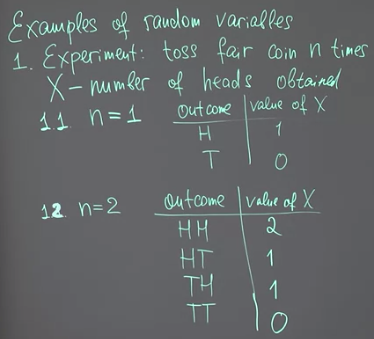 Examples of random variables
1. Experiment: toss fair coin n times
X – number of heads obtained
1.1 n=1 outcome value of X
H 1
T 0
1.2 n=2 outcome value of X
HH 2
HT 1
TH 1
TT 0